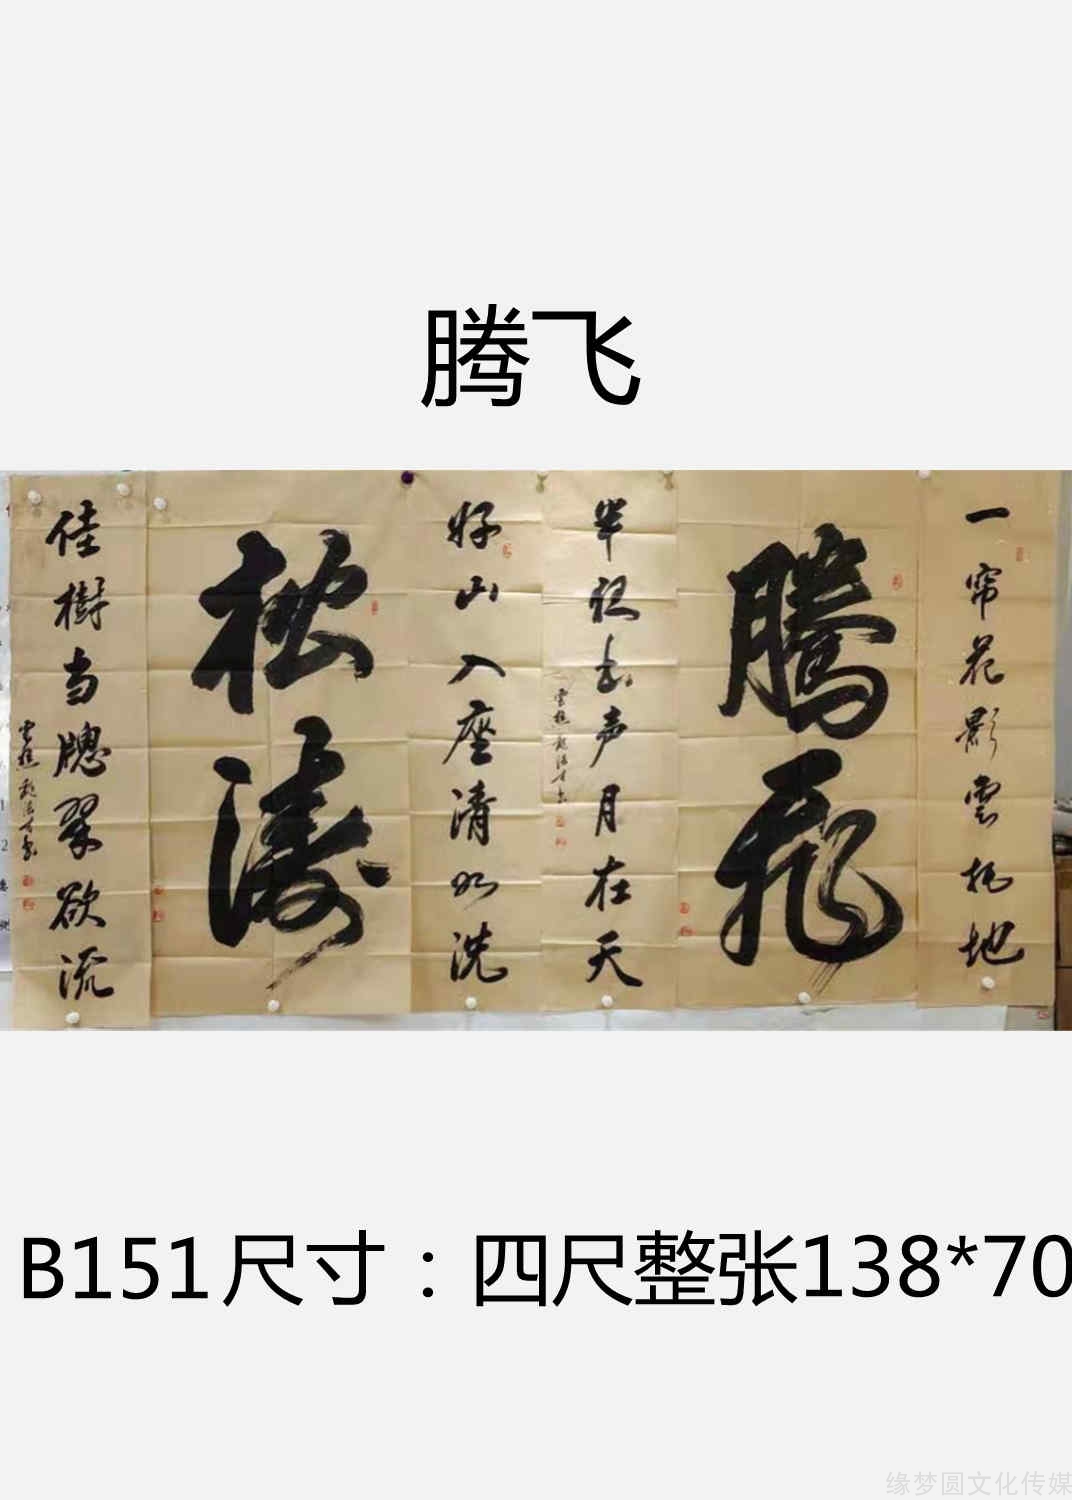 腾飞
一帘花影雲拖地
腾飛
半夜书声月在天
好山入座清如洗
松涛
佳樹当牕翠欲流
B151尺寸：四尺整张138*70
缘梦圆文化传媒